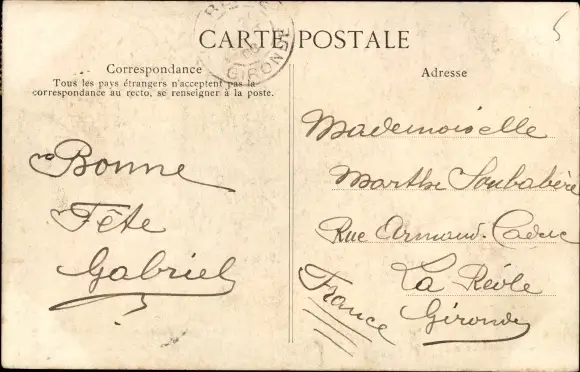 CARTE POSTALE
Correspondance
Tous les pays étrangers n'acceptent pas la
correspondance au recto, se renseigner à la poste.
Adresse
Bonne
Fête
Gabriel
Mademoiselle
Marthe Soubabère
Rue Armand-Caduc
La Réole
Gironde
France
GIRONDE
5